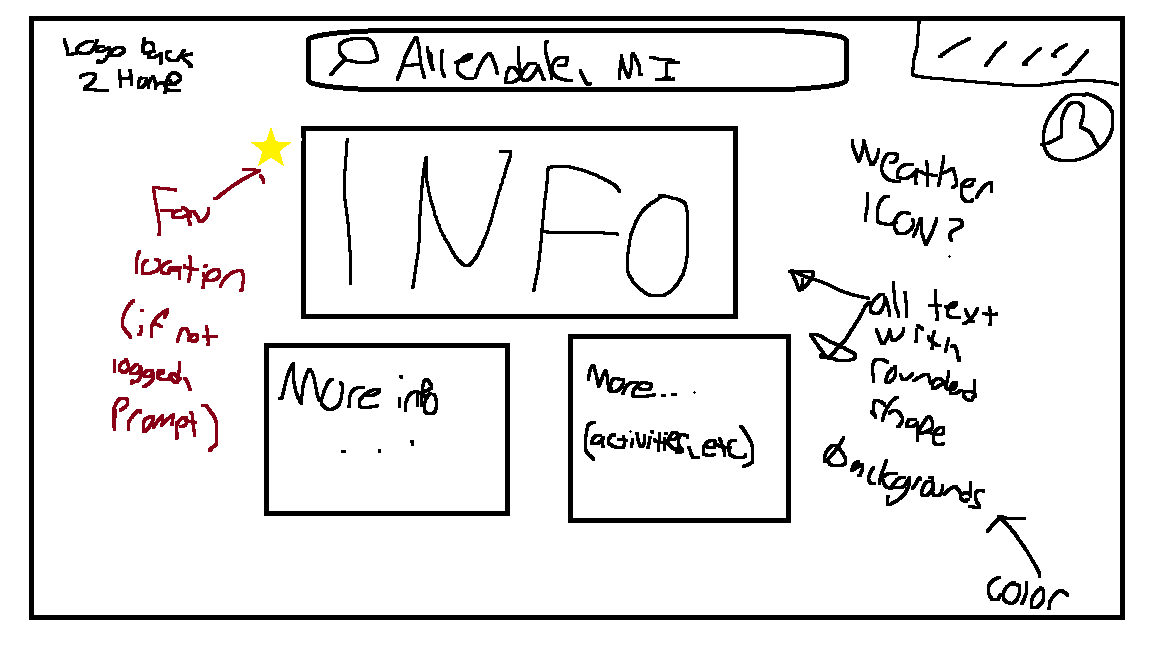 Logo back
2 Home
Allendale, MI
INFO
Fav
location
(if not
logged,
Prompt)
Weather
ICON?
all text
with
rounded
shape
backgrounds
color
More info
. . .
More...
(activities, etc)